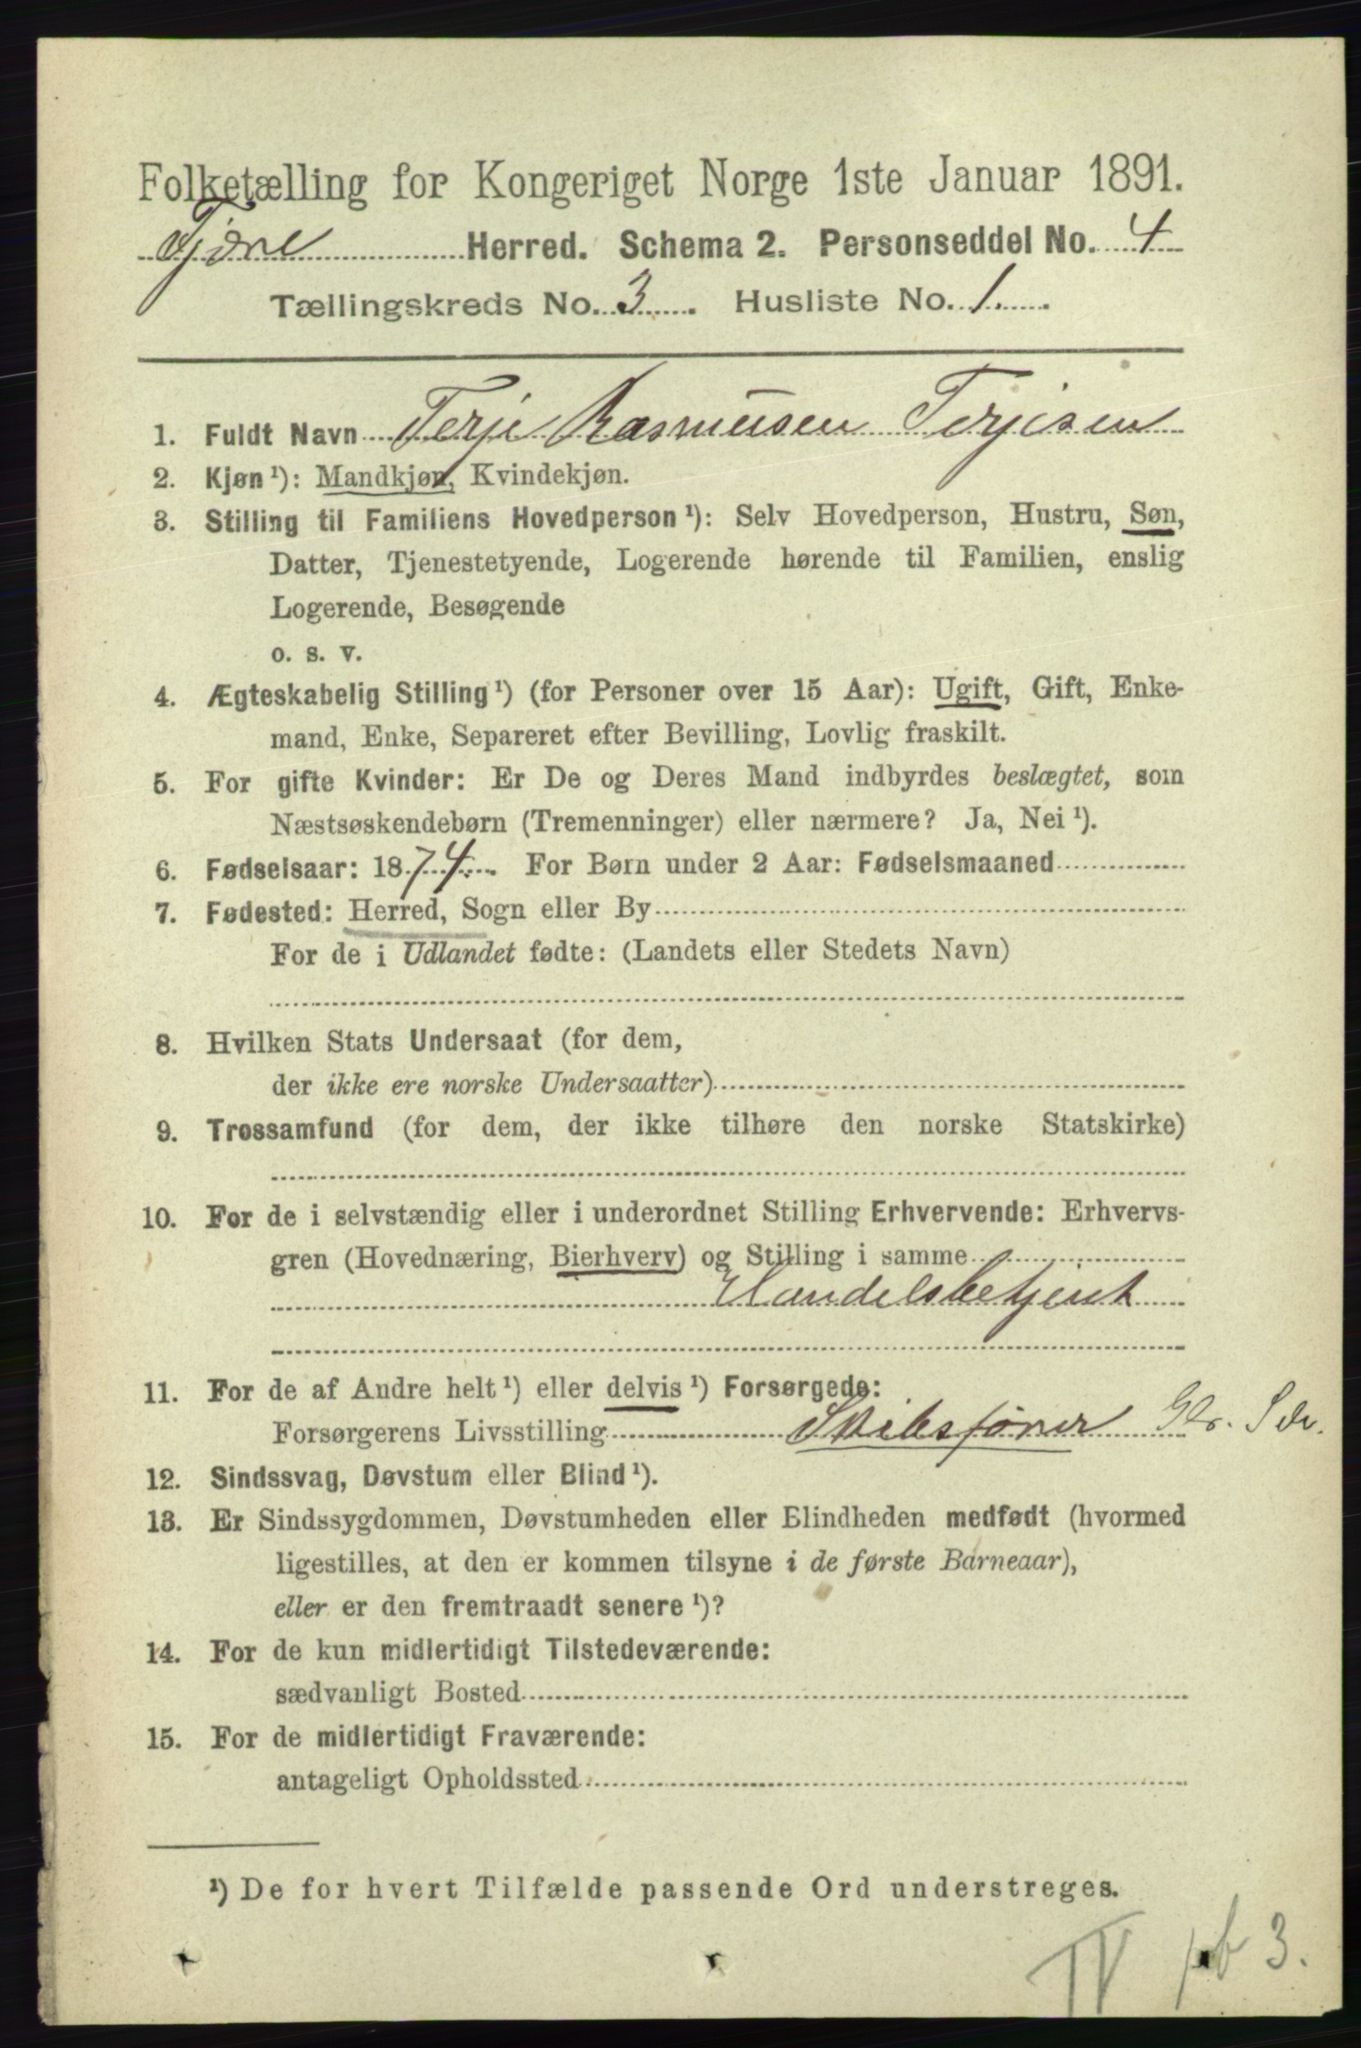 Folketælling for Kongeriget Norge 1ste Januar 1891.
Fjære Herred. Schema 2. Personseddel No. 4
Tællingskreds No. 3. Husliste No. 1.
1. Fuldt Navn Terje Rasmusen Terjesen
2. Kjøn ¹): Mandkjøn, Kvindekjøn.
3. Stilling til Familiens Hovedperson ¹): Selv Hovedperson, Hustru, Søn,
Datter, Tjenestetyende, Logerende hørende til Familien, enslig
Logerende, Besøgende
o. s. v.
4. Ægteskabelig Stilling ¹) (for Personer over 15 Aar): Ugift, Gift, Enke-
mand, Enke, Separeret efter Bevilling, Lovlig fraskilt.
5. For gifte Kvinder: Er De og Deres Mand indbyrdes beslægtet, som
Næstsøskendebørn (Tremenninger) eller nærmere? Ja, Nei ¹).
6. Fødselsaar: 1874. For Børn under 2 Aar: Fødselsmaaned
7. Fødested: Herred, Sogn eller By
For de i Udlandet fødte: (Landets eller Stedets Navn)
8. Hvilken Stats Undersaat (for dem,
der ikke ere norske Undersaatter)
9. Trossamfund (for dem, der ikke tilhøre den norske Statskirke)
10. For de i selvstændig eller i underordnet Stilling Erhvervende: Erhvervs-
gren (Hovednæring, Bierhverv) og Stilling i samme
Handelsbetjent
11. For de af Andre helt ¹) eller delvis ¹) Forsørgede:
Forsørgerens Livsstilling Skibsfører
12. Sindssvag, Døvstum eller Blind ¹).
13. Er Sindssygdommen, Døvstumheden eller Blindheden medfødt (hvormed
ligestilles, at den er kommen tilsyne i de første Barneaar),
eller er den fremtraadt senere ¹)?
14. For de kun midlertidigt Tilstedeværende:
sædvanligt Bosted
15. For de midlertidigt Fraværende:
antageligt Opholdssted
¹) De for hvert Tilfælde passende Ord understreges.
IV b 3.